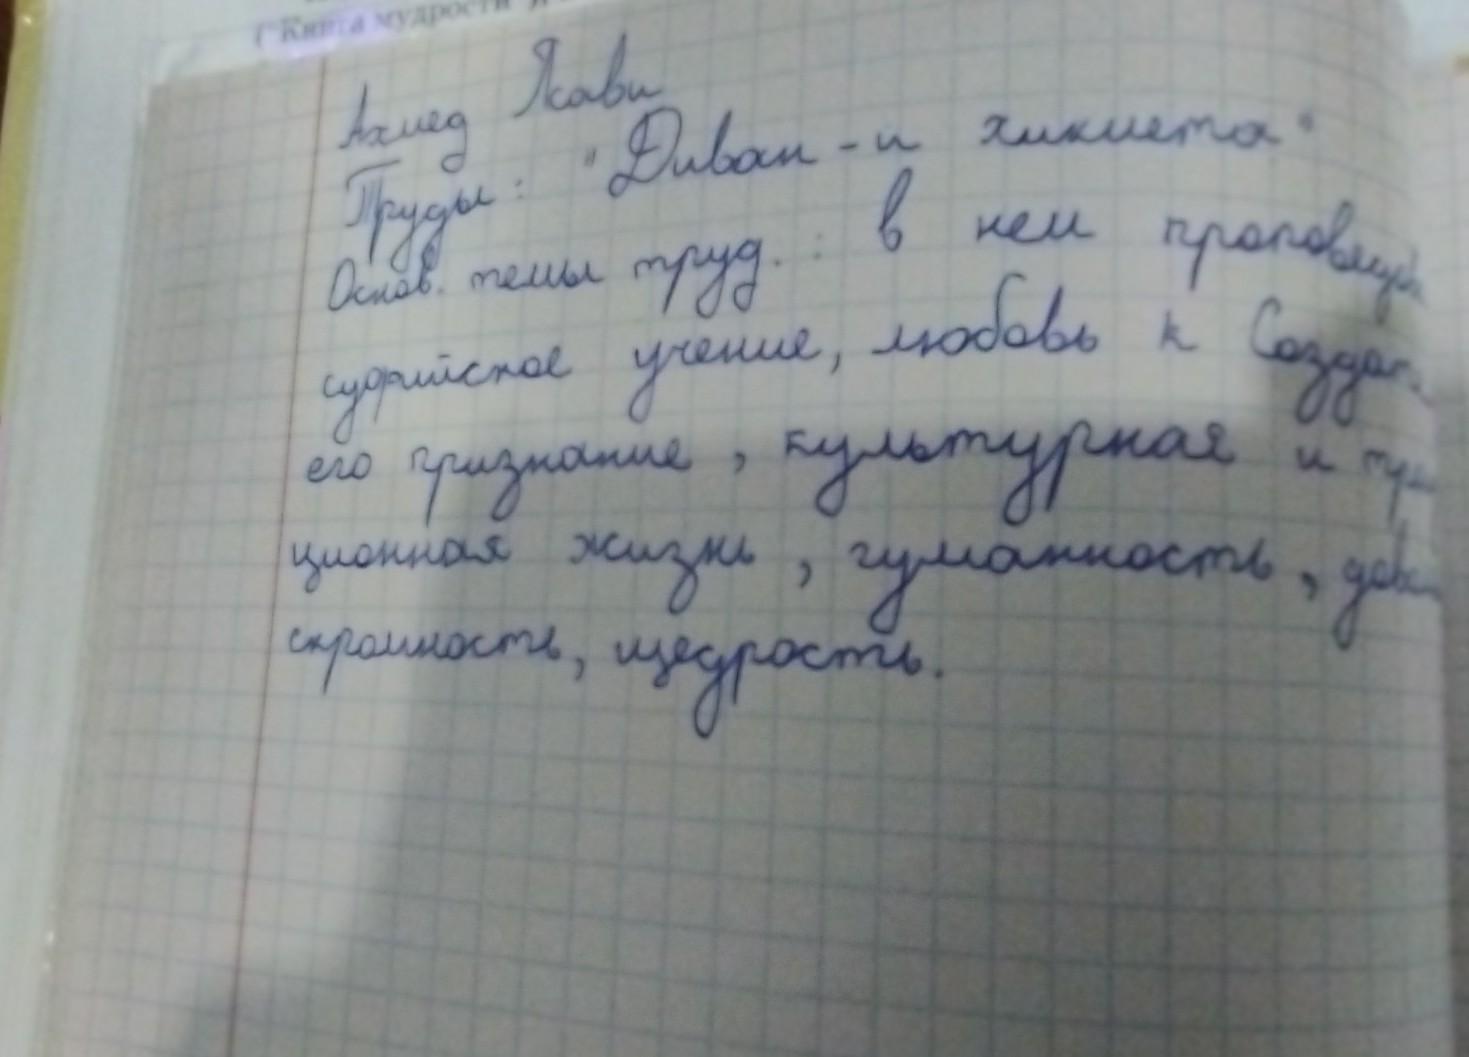 ( "Книга мудрости"
Ахмед Ясави
Труды: "Диван-и хикмета"
Основ. темы труд. : в нем
суфийское учение, любовь к
его признание, культурная и
ционная жизнь, гуманность,
скромность, щедрость.